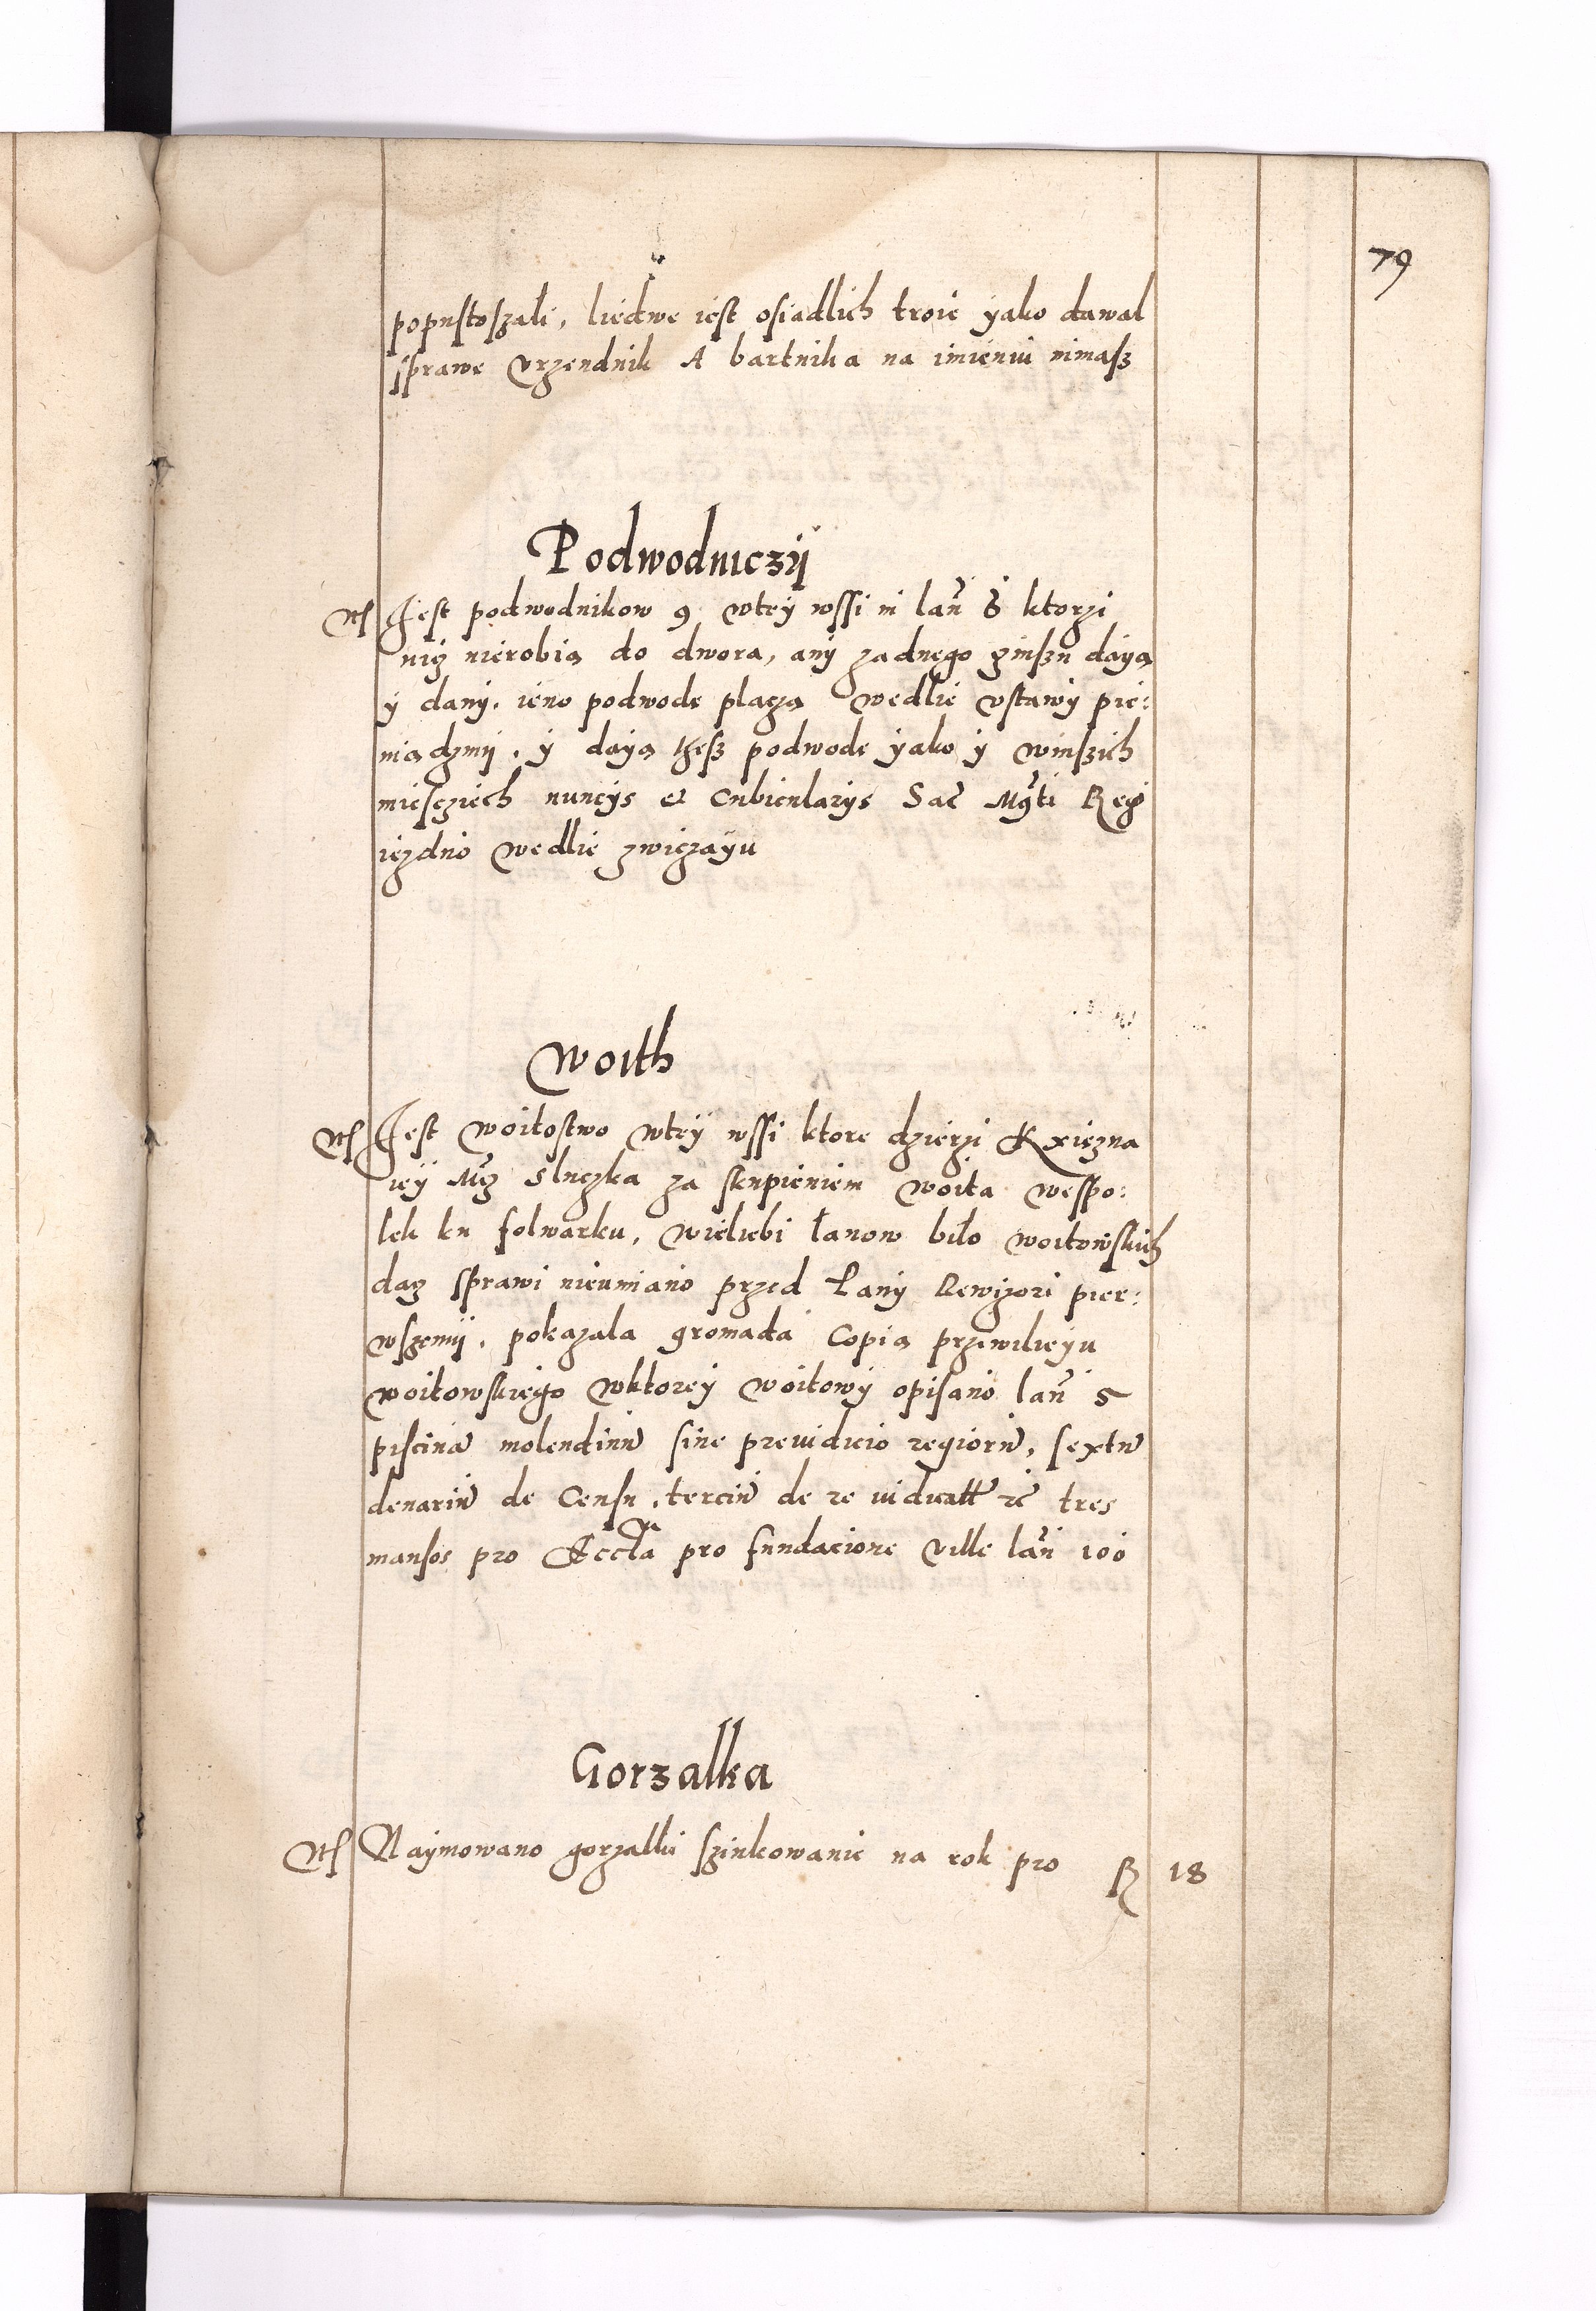 79
popustoszali, liedwe iest osiadlich troie yako dawal
sprawe vrzendnik A bartnika na imieniu nimasz
Podwodniczÿ
Jest podwodnikow 9 wteÿ wssi in lan̄ 8 ktorzi
niz nierobią do dwora, anÿ zadnego zinszu dayą
ÿ danÿ. ieno podwode placzą wedlie vstawÿ pie:
niadzmÿ. ÿ dayą thesz podwode ÿako ÿ winszich
miesziech nuncÿs et Cubicularÿs Sac̄ Mÿti Reg
iezdno wedlie zwiczaÿu
Woith
Jest woitostwo wteÿ wssi ktore dzierzi Kxiezna
ieÿ Mcz Sluczka za skupieniem woita wespo:
lek ku folwarku, wieliebi łanow biło woitowskich
dacz sprawi nieumiano przed tanÿ Rewizori pier:
wszemÿ. pokazala gromada Copią przÿwilieÿu
woitowskiego wktoreÿ woitowÿ opisano lan̄ 5
piscina molendinu sine preiudicio regioru, sextu
denariu de Censu, terciu de re iudicatt rē tres
mansos pro Eccła pro fundacione ville lan̄ 100
Gorzalka
Naymowano gorzalki szinkowanie na rok pro 18